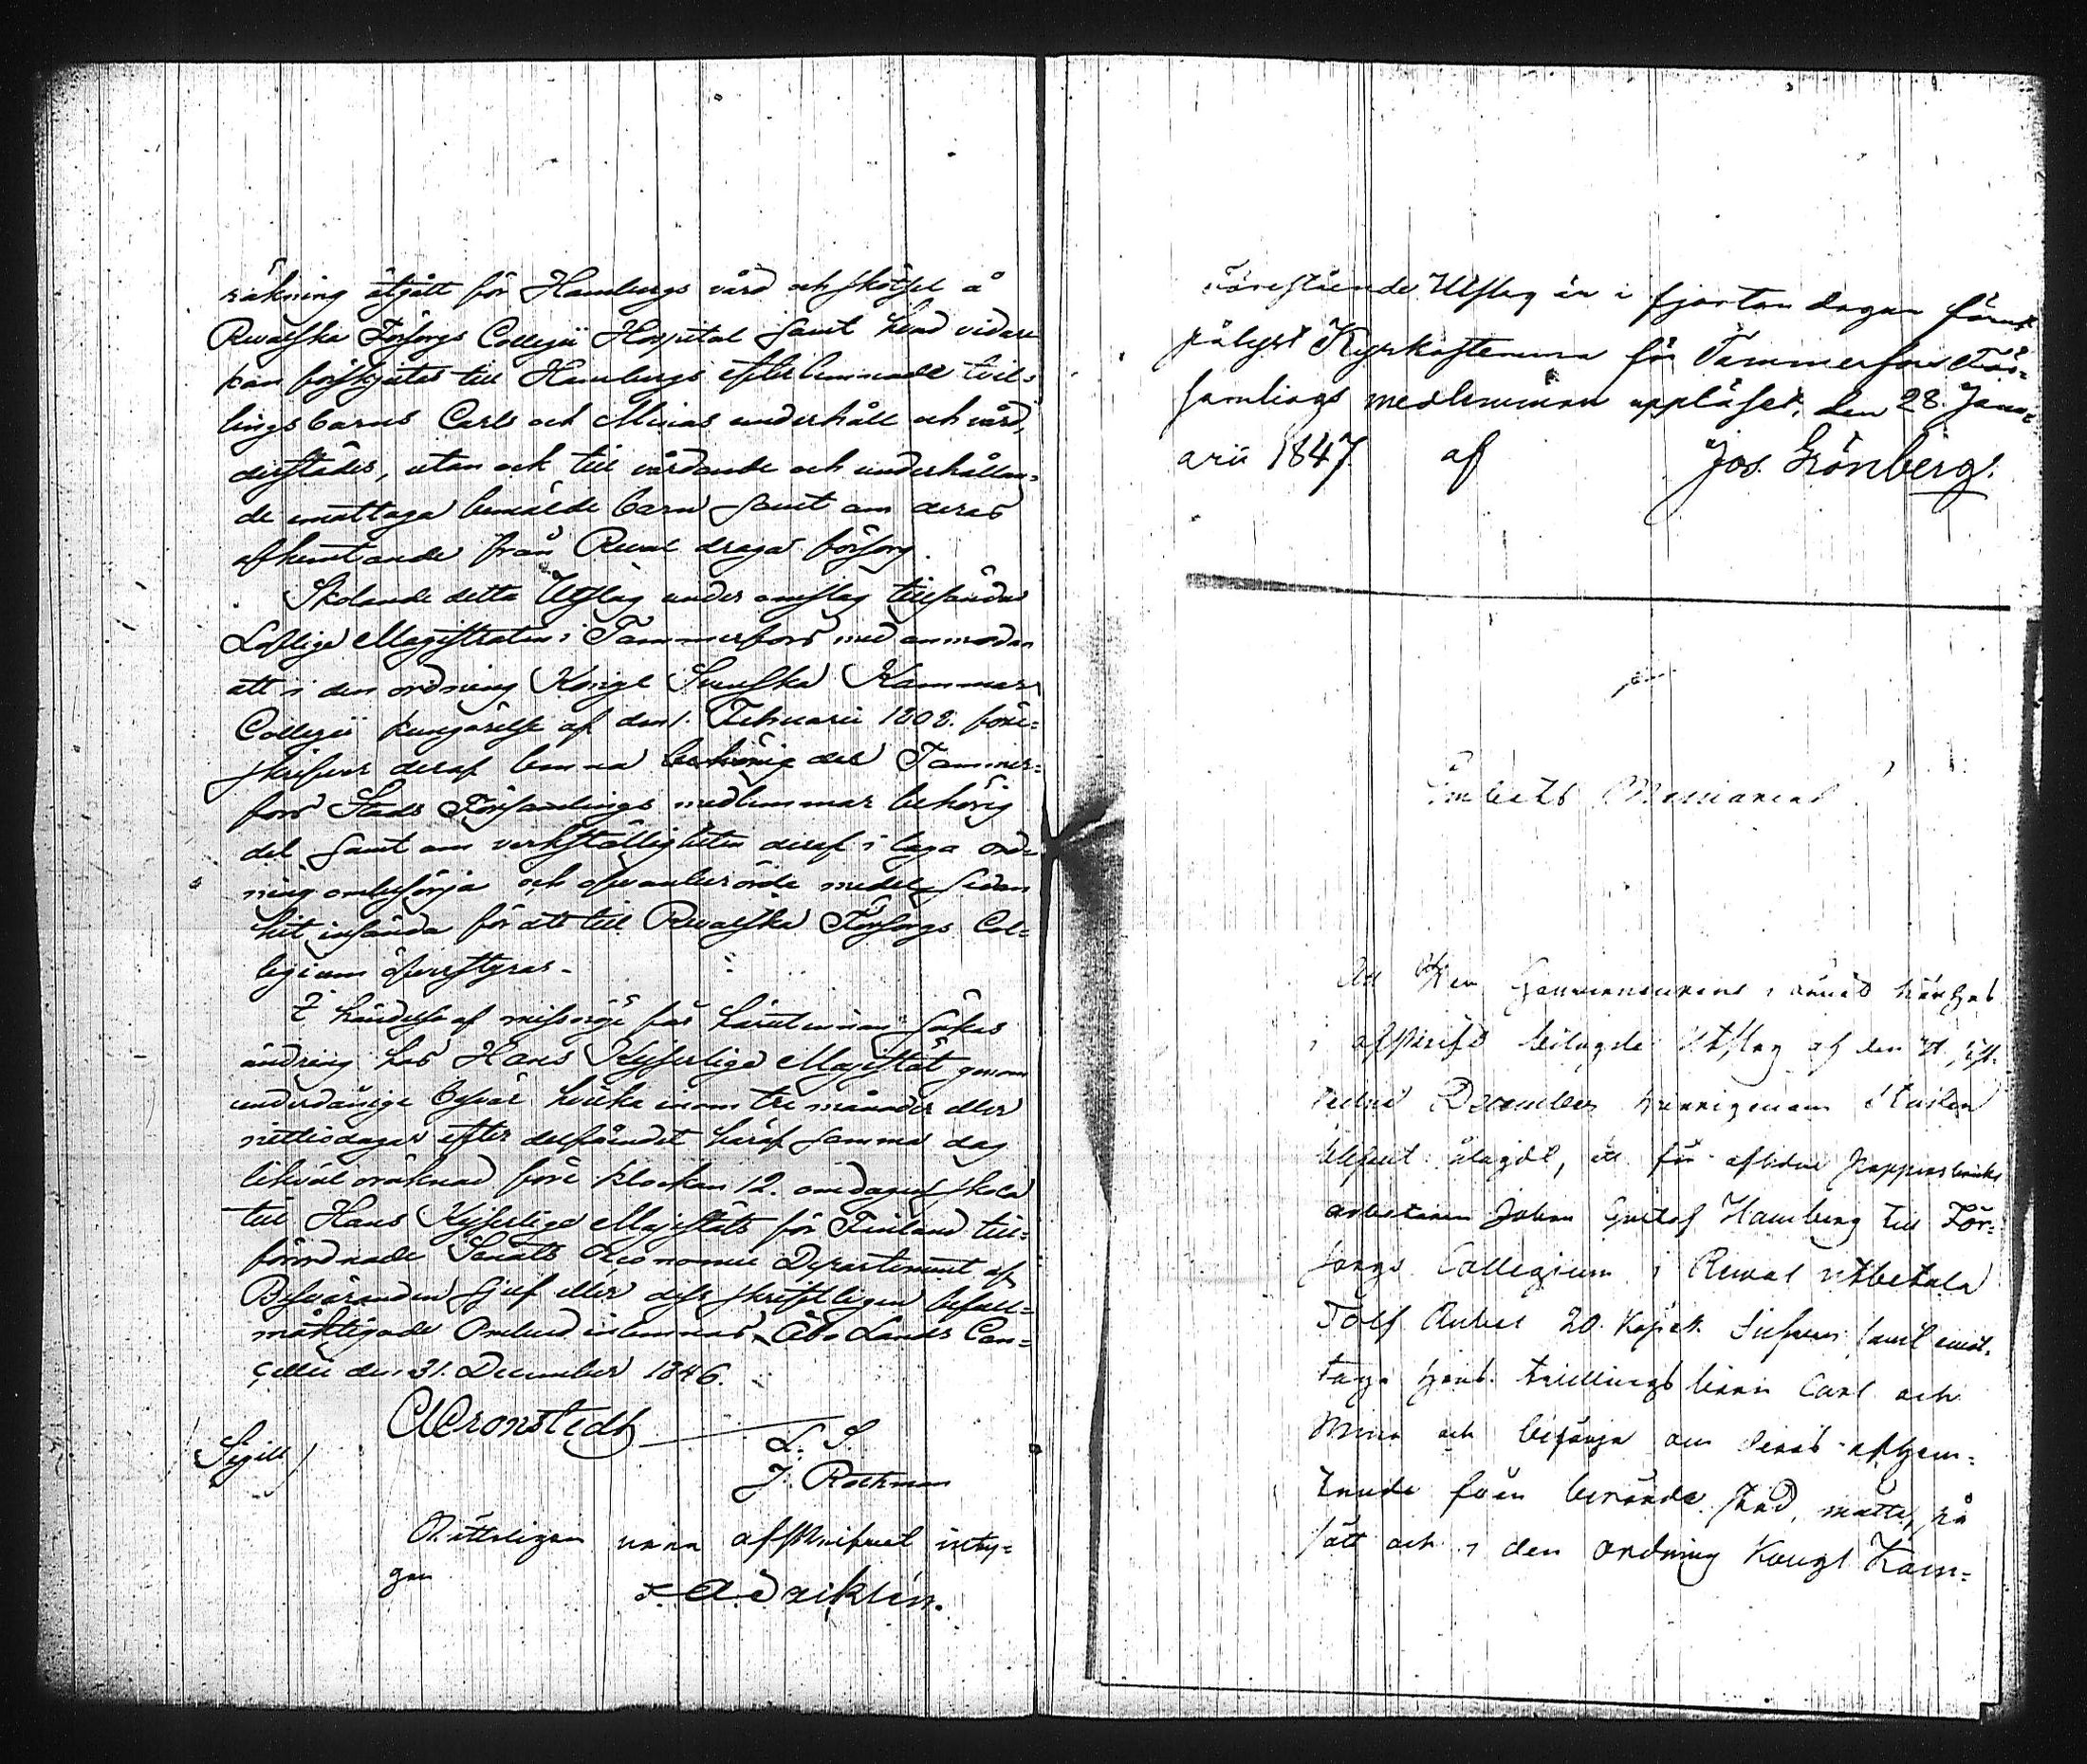 räkning åtgått för Hambergs vård och skötsel å
Revalska Försorgs Collegii Hospital samt hvad vidare
kan förskjutas till Hambergs efterlemnade tvil-
lings barns Carls och Minas underhåll och vård,
derstädes, utan ock till vårdande och underhållan-
de emottaga bemälde barn samt om deras
afhemtande från Reval draga försorg.
Skolande detta Utslag under omslag tillsändas
Loflige Magistraten i Tammerfors med anmodan
att i den ordning Kongl Svenska Kammar
Collegii kungörelse af den 1. Februarii 1802. före-
skrifver deraf lemna behörig del Tammer-
fors Stads Församlings medlemmar behörig
del samt om verkställigheten deraf i laga ord-
ning ombesörja och ofvanberörde medel sedan
hit insända för att till Revalska Försorgs Col-
legium öfverstyras.
I händelse af missnöje får härutinnan sökas
ändring hos Hans Kejserliga Majestät genom
underdånige besvär hvilka inom tre månader eller
nittio dagar efter delfåendet häraf samma dag
likväl oräknad före klockan 12. om dagen skola
till Hans Kejserliga Majestäts för Finland till-
förordnade Senats Oeconomie Departement af
Besväranden sjelf eller dess skriftligen befull-
mäktigade Ombud inlemnas. Åbo Lands Can-
cellie den 31. December 1846.
Cronstedt
L. S.
Sigill
J. Rothman
Rätteligen vara afskrifvet inty-
gar
Förestående Utslag är i fjorton dagar förut
pålyst Kyrkostemma för Tammerfors För-
samlings medlemmar uppläset, den 28 Janu-
arii 1847. af Jos. Grönberg.
Embets Memorial
Gouverneurens i länet härhos
i afskrift bilagde Utslag af den 31 sist-
ledne December
blifvit ålagdt, att för aflidne Pappersbruks
arbetaren Johan Gustaf Hamberg till För-
sorgs Collegium i Reval utbetala
Tolf Rubel 20. Kopek Silfver samt emot-
taga hans tvillingsbarn Carl och
Mina och besörja om deras afhem-
tande från berörde stad, måtte, på
sätt och i den ordning Kongl Kam-